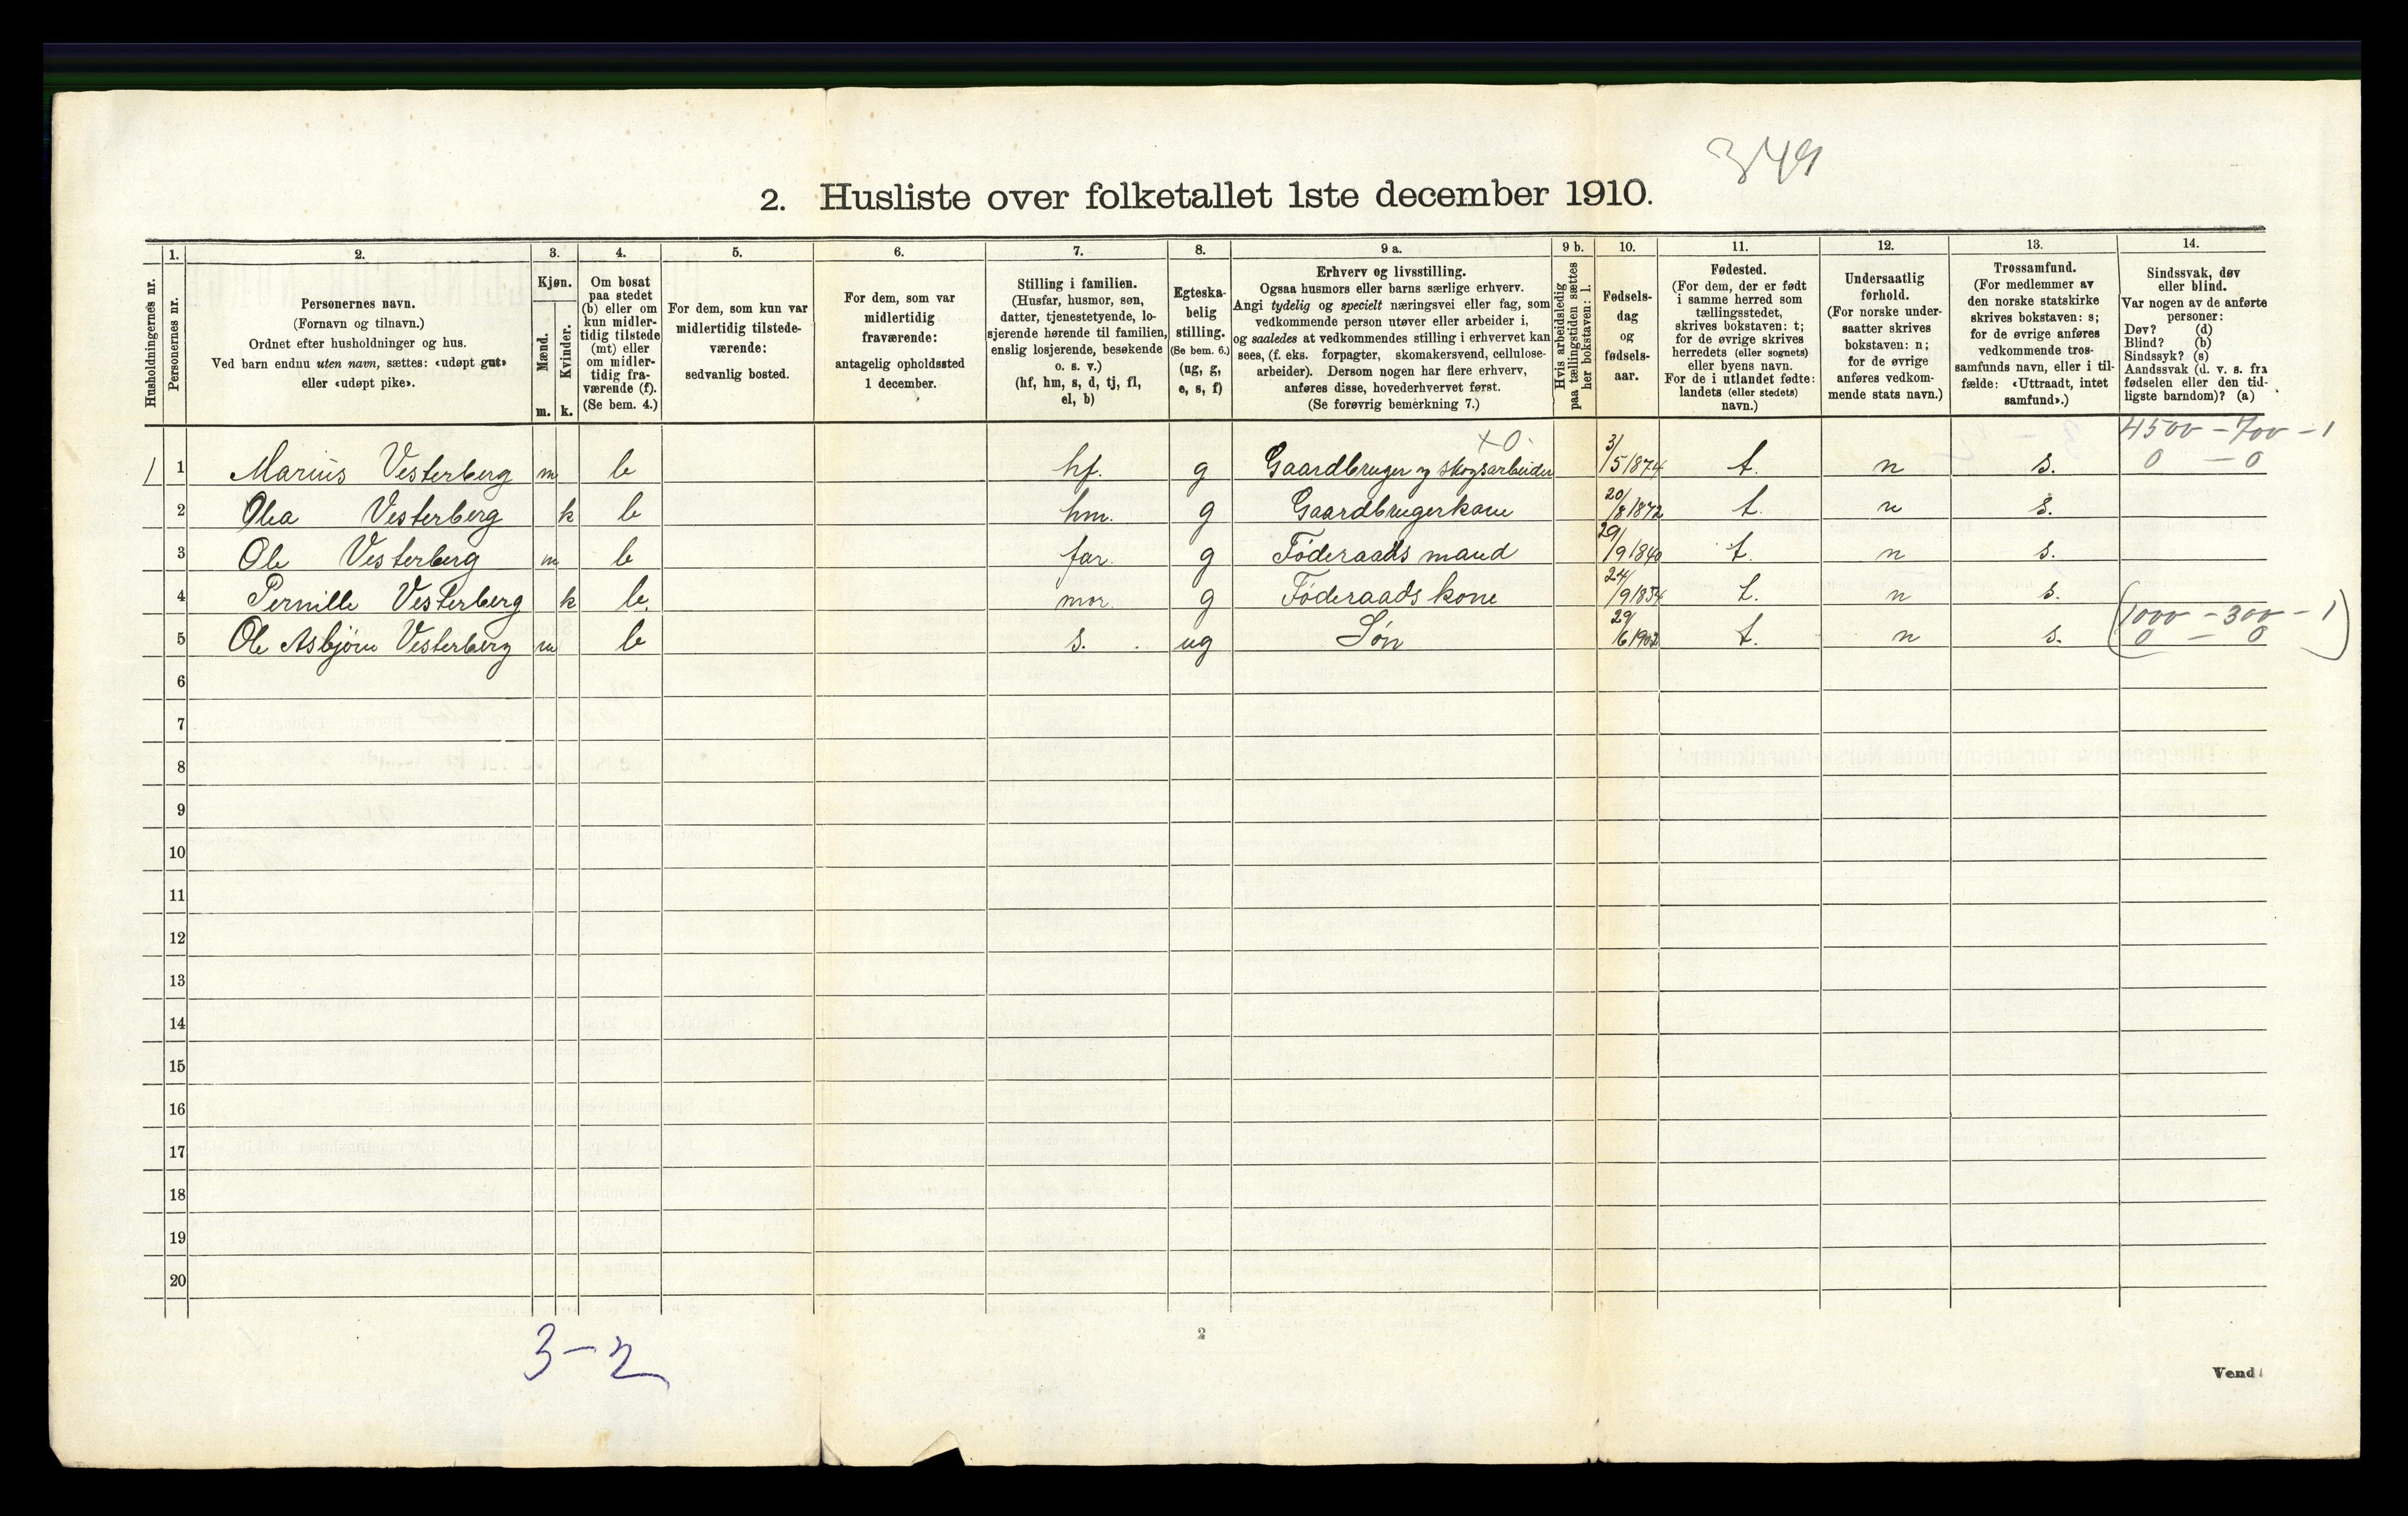 349
2. Husliste over folketallet 1ste december 1910.
Husholdningernes nr.
1.
Personernes nr.
2.
Personernes navn.
(Fornavn og tilnavn.)
Ordnet efter husholdninger og hus.
Ved barn endnu uten navn, sættes: «udøpt gut»
eller «udøpt pike».
3.
Kjøn.
Mænd.
m.
Kvinder.
k.
4.
Om bosat
paa stedet
(b) eller om
kun midler-
tidig tilstede
(mt) eller
om midler-
tidig fra-
værende (f).
(Se bem. 4.)
5.
For dem, som kun var
midlertidig tilstede-
værende:
sedvanlig bosted.
6.
For dem, som var
midlertidig
fraværende:
antagelig opholdssted
1 december.
7.
Stilling i familien.
(Husfar, husmor, søn,
datter, tjenestetyende, lo-
sjerende hørende til familien,
enslig losjerende, besøkende
o. s. v.)
(hf, hm, s, d, tj, fl,
el, b)
8.
Egteska-
belig
stilling.
(Se bem. 6.)
(ug, g,
e, s, f)
9 a.
Erhverv og livsstilling.
Ogsaa husmors eller barns særlige erhverv.
Angi tydelig og specielt næringsvei eller fag, som
vedkommende person utøver eller arbeider i,
og saaledes at vedkommendes stilling i erhvervet kan
sees, (f. eks. forpagter, skomakersvend, cellulose-
arbeider). Dersom nogen har flere erhverv,
anføres disse, hovederhvervet først.
(Se forøvrig bemerkning 7.)
9 b.
Hvis arbeidsledig
paa tællingstiden sættes
her bokstaven: l.
10.
Fødsels-
dag
og
fødsels-
aar.
11.
Fødested.
(For dem, der er født
i samme herred som
tællingsstedet,
skrives bokstaven: t;
for de øvrige skrives
herredets (eller sognets)
eller byens navn.
For de i utlandet fødte:
landets (eller stedets)
navn.)
12.
Undersaatlig
forhold.
(For norske under-
saatter skrives
bokstaven: n;
for de øvrige
anføres vedkom-
mende stats navn.)
13.
Trossamfund.
(For medlemmer av
den norske statskirke
skrives bokstaven: s;
for de øvrige anføres
vedkommende tros-
samfunds navn, eller i til-
fælde: «Uttraadt, intet
samfund».)
14.
Sindssvak, døv
eller blind.
Var nogen av de anførte
personer:
Døv? (d)
Blind? (b)
Sindssyk? (s)
Aandssvak (d. v. s. fra
fødselen eller den tid-
ligste barndom)? (a)
4500 - 700 - 1
0 - 0
x 0
1 1 Marius Vesterberg m b hf. g Gaardbruger og skogsarbeider 3/5 1874 t. n s.
2 Olea Vesterberg k b hm. g Gaardbrugerkone 20/8 1872 t. n s.
3 Ole Vesterberg m b far. g Föderaads mand 29/9 1840 t. n s.
4 Pernille Vesterberg k b. mor. g Föderaads kone 24/9 1834 t. n s.
(1000 - 300 - 1
0 - 0)
5 Ole Asbjørn Vesterberg m b s. ug Søn 29/6 1902 t. n s.
6
7
8
9
10
11
12
13
14
15
16
17
18
19
20
3-2
2
Vend!